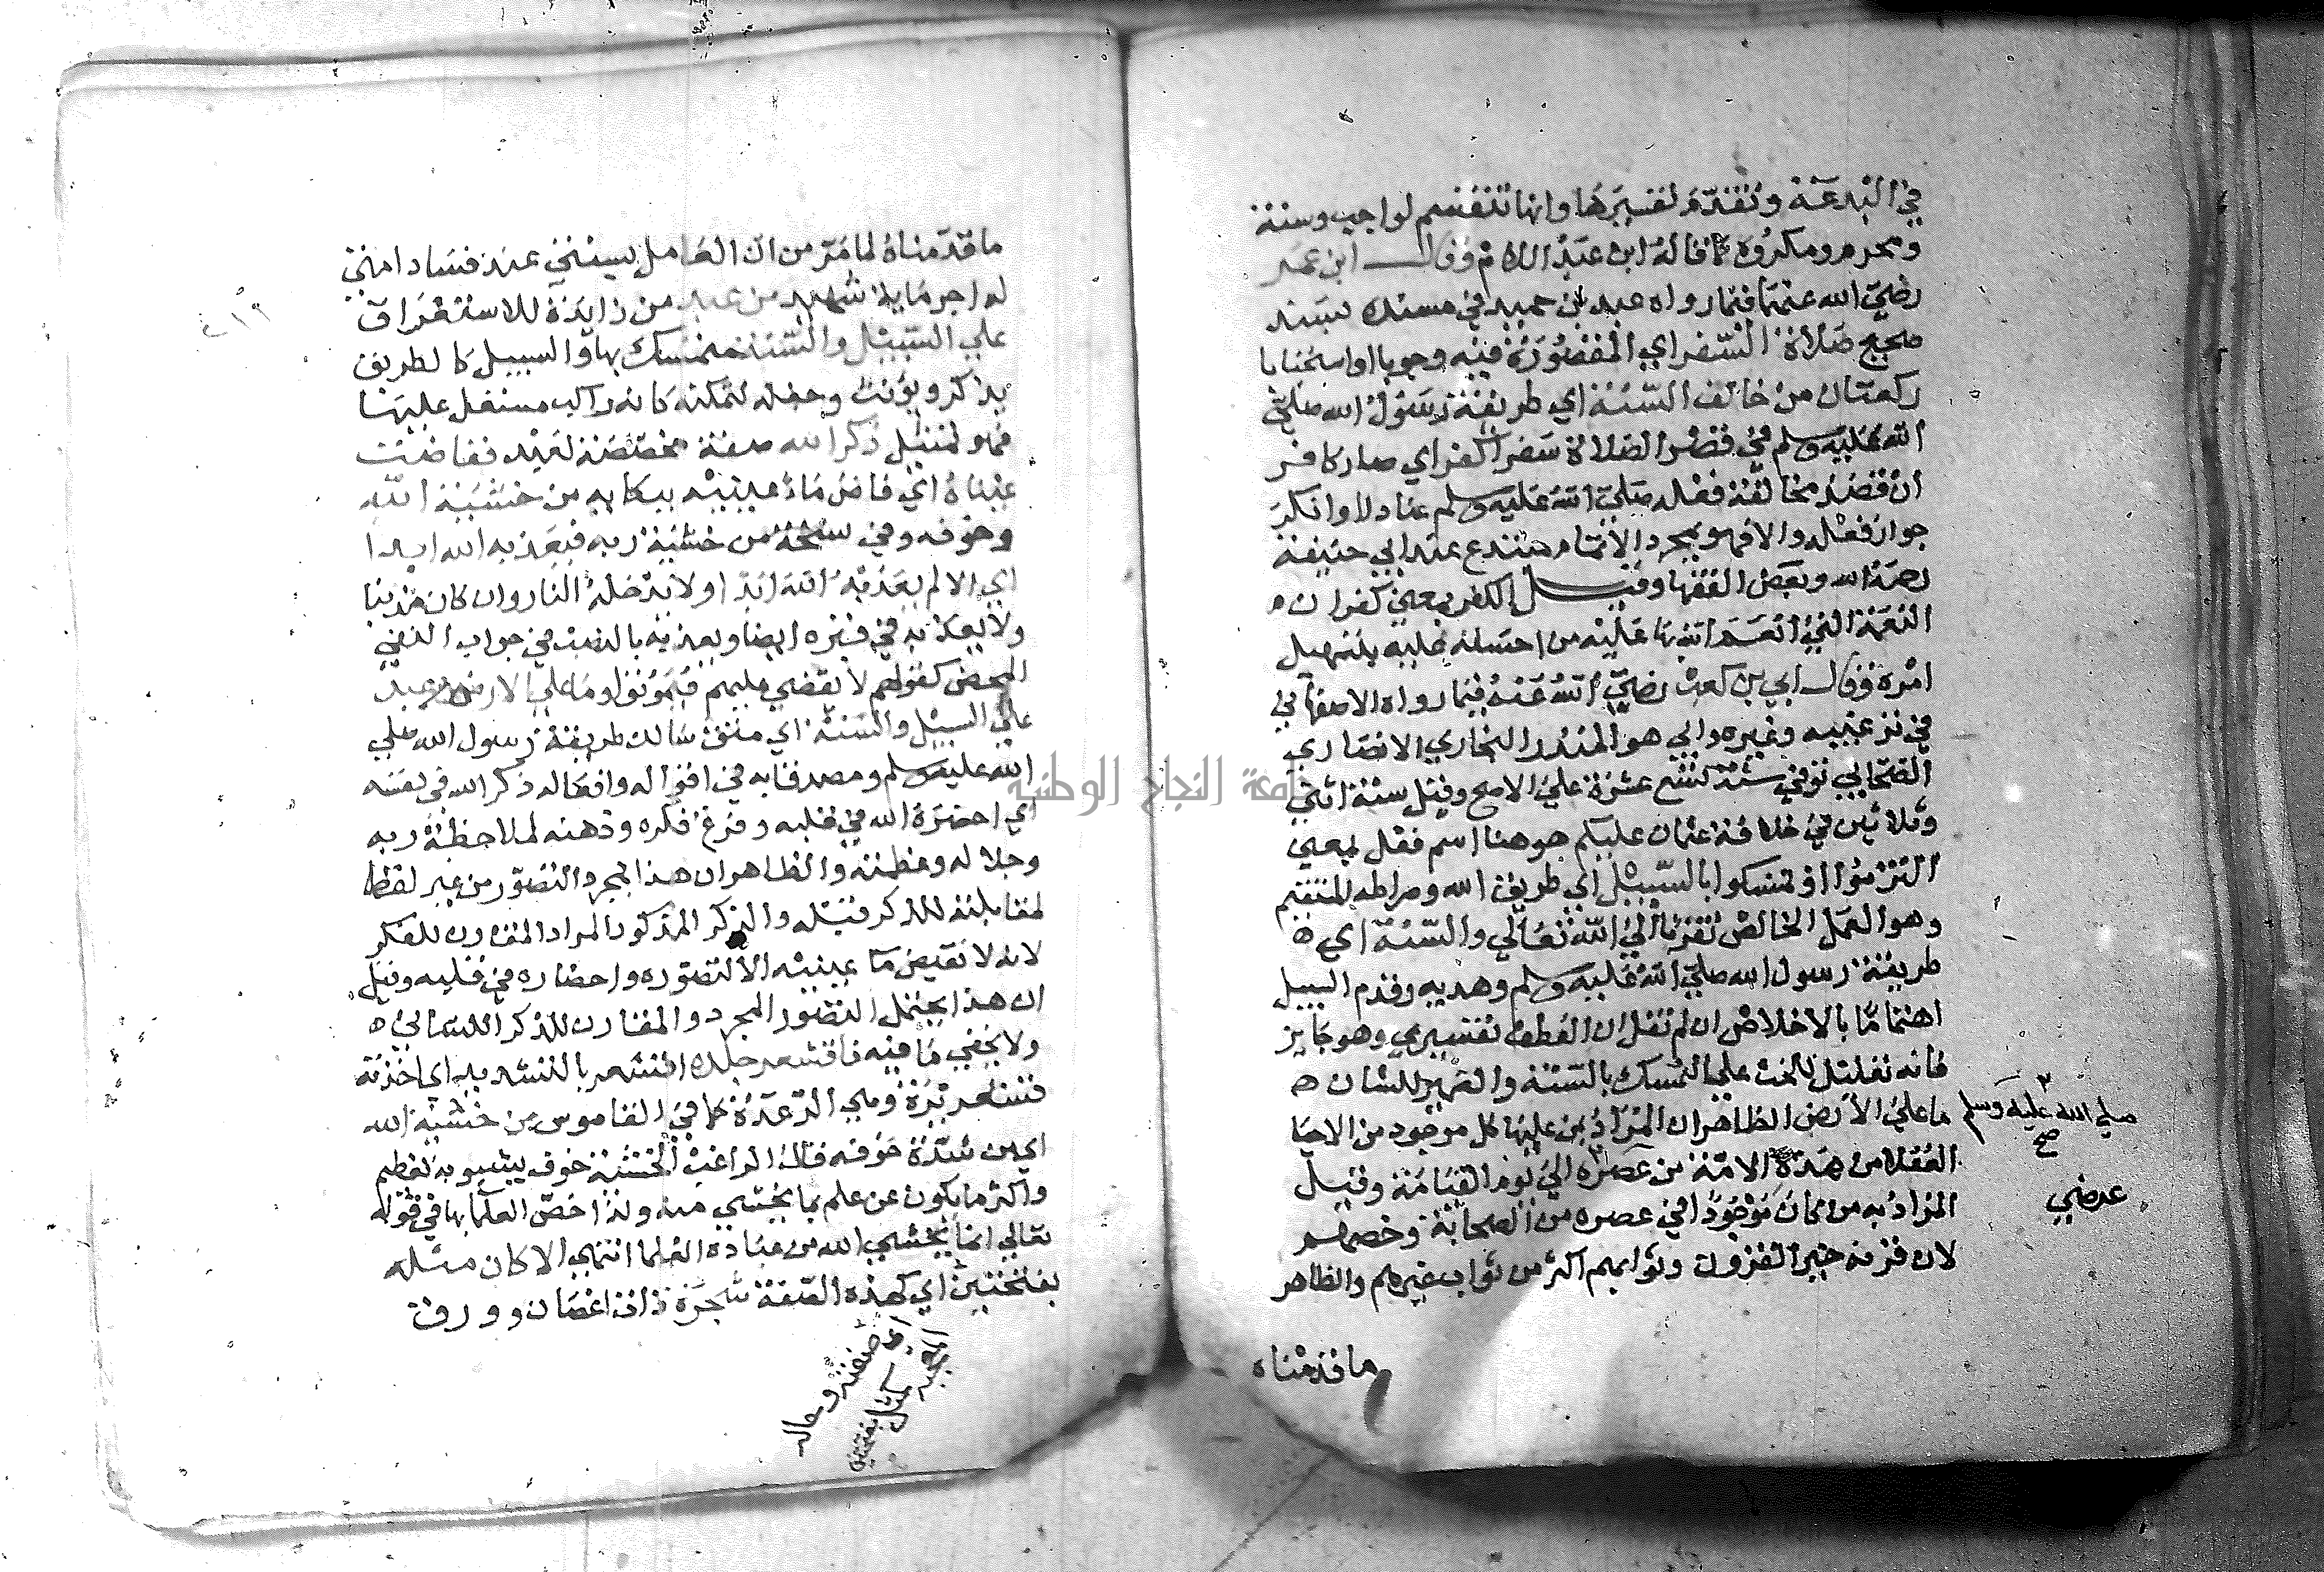 في البدعة وتقدم تفسيرها وانها تنقسم لواجب وسنة
ومحرم ومكروه كما قاله ابن عبد السلام وقال ابن عمر
رضي الله عنهما فيما رواه عبد بن حميد في مسنده بسند
صحيح صلاة السفر اي المقصورة فيه وجوبا او استحبابا
ركعتان من خالف السنة اي طريقة رسول الله صلي
الله عليه وسلم في قصر الصلاة سفرا كفر اي صار كافر
ان قصد مخالفة فعله صلي الله عليه وسلم عنادا او انكر
جواز فعله والا فهو بمجرد الاتمام مبتدع عند ابي حنيفة
رحمه الله وبعض الفقها وقيل الكفر بمعني كفران
النعمة التي انعم الله بها عليه من احسانه عليه بتسهيل
امره وقال ابي بن كعب رضي الله عنه فيما رواه الاصفهاني
في ترغيبه وغيره وابي هو المنذر البخاري الانصاري
الصحابي توفي سنة تسع عشرة علي الاصح وقيل سنة اثني
وثلاثين في خلافة عثمان عليكم هو هنا اسم فعل بمعني
التزموا او تمسكوا بالسبيل اي طريق الله وصراطه المستقيم
وهو العمل الخالص تقربا الي الله تعالي والسنة اي
طريقة رسول الله صلي الله عليه وسلم وهديه وقدم السبيل
اهتماما بالاخلاص ان لم نقل ان العطف تفسيري وهو جايز
فانه تعليل للحث علي التمسك بالسنة والضمير للشان
ما علي الارض الظاهر ان المراد بمن عليها كل موجود من الاحيا
العقلا من هذه الامة من عصره الي يوم القيامة وقيل
المراد به من كان موجودا في عصره من الصحابة وخصهم
لان قرنه خير القرون وثوابهم اكثر من ثواب غيرهم والظاهر
صلي الله عليه وسلم
صح
عرضي
ما قدمناه
ما قدمناه لما مر من ان العامل بسنتي عند فساد امتي
له اجر ماية شهيد من عبد من زايدة للاستغراق
علي السبيل والسنة متمسك بها والسبيل كالطريق
يذكر ويؤنث وجعله لتمكنه كانه راكب مستعل عليها
فهو تمثيل ذكر الله صفة مخصصة لعبد ففاضت
عيناه اي فاض ماء عينيه ببكايه من خشية الله
وخوفه وفي نسخة من خشية ربه فيعذبه الله ابدا
اي الا لم يعذبه الله ابدا ولا يدخله النار وان كان مذنبا
ولا يعذبه في قبره ايضا ويعذبه بالنصب في جواب النفي
المحض كقوله لا يقضي عليهم فيموتوا وما علي الارض من عبد
علي السبيل والسنة اي متق سالك طريقة رسول الله صلي
الله عليه وسلم ومصدقا به في اقواله وافعاله ذكر الله في نفسه
اي احضره الله في قلبه وفرغ فكره وذهنه لملاحظة ربه
وجلاله وعظمته والظاهر ان هذا لمجرد التصور من غير لفظ
لمقابلته للذكر قبله والذكر المذكور المراد المقارن للفكر
لانه لا تفيض ماء عينيه الا لتصوره واحضاره في قلبه وقيل
ان هذا يحتمل التصور المجرد والمقارن للذكر اللساني
ولا يخفي ما فيه فاقشعر جلده اقشعر بالتشديد اي اخذته
قشعريرة وهي الرعدة كما في القاموس من خشية الله
اي من شدة خوفه قال الراغب الخشية خوف يشوبه تعظيم
واكثر ما يكون عن علم بما يخشي منه ولذا خص العلما بها في قوله
تعالي انما يخشي الله من عباده العلما انتهي الا كان مثله
بفتحتين اي كهذه الصفة شجرة ذات اغصان وورق
اي صفته وحاله
العجيبة كمثل
بفتحتين
جامعة النجاح الوطنية